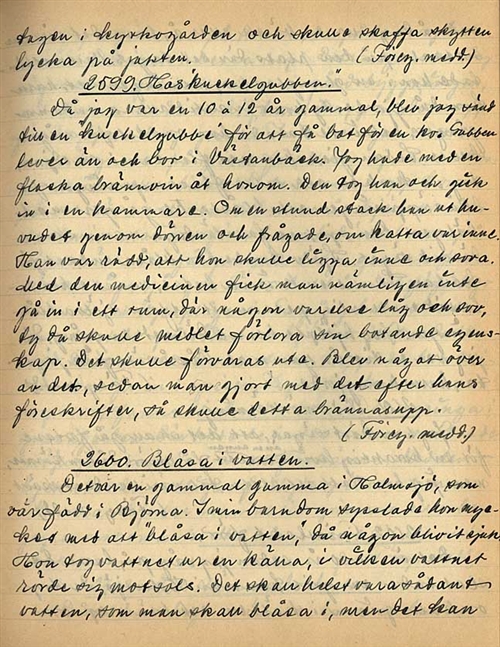 tagen i kyrkogården och skulle skaffa skytten
lycka på jakten. (Föreg. medd.)
2599. Hos "kuckelgubben."
Då jag var en 10 à 12 år gammal, blev jag sänd
till en "kuckelgubbe" för att få bot för en ko. Gubben
lever än och bor i Västanbäck. Jag hade med en
flaska brännvin åt honom. Den tog han och gick
in i en kammare. Om en stund stack han ut hu-
vudet genom dörren och frågade, om katta var inne.
Han var rädd, att hon skulle ligga inne och sova.
Med den medicinen fick man nämligen inte
gå in i ett rum, där någon varelse låg och sov,
ty då skulle medlet förlora sin botande egens-
kap. Det skulle förvaras ute. Blev något över
av det, sedan man gjort med det efter hans
föreskrifter, så skulle detta brännas upp.
(Föreg. medd.)
2600. Blåsa i vatten.
Det var en gammal gumma i Holmsjö, som
var född i Björna. I min barndom sysslade hon myc-
ket med att "blåsa i vatten," då någon blivit sjuk.
Hon tog vattnet ur en källa, i vilken vattnet
rörde sig motsols. Det skall helst vara sådant
vatten, som man skall blåsa i, men det kan